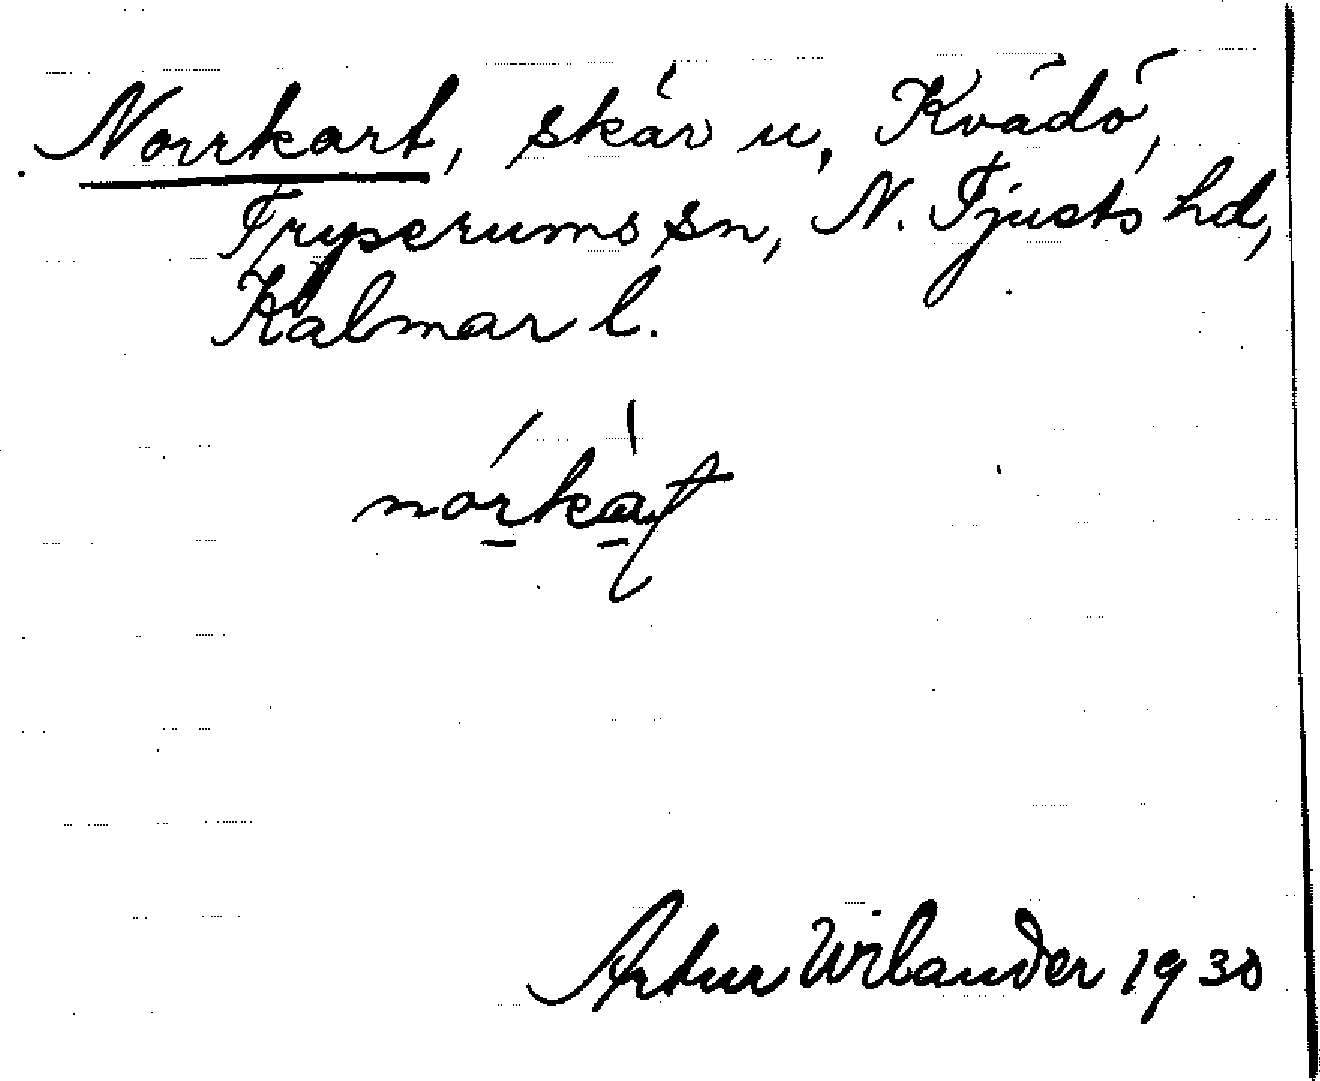 Norrkart, skär u. Kvädö,
Tryserums sn, N. Tjusts hd,
Kalmar l.
Artur Wilander 1930